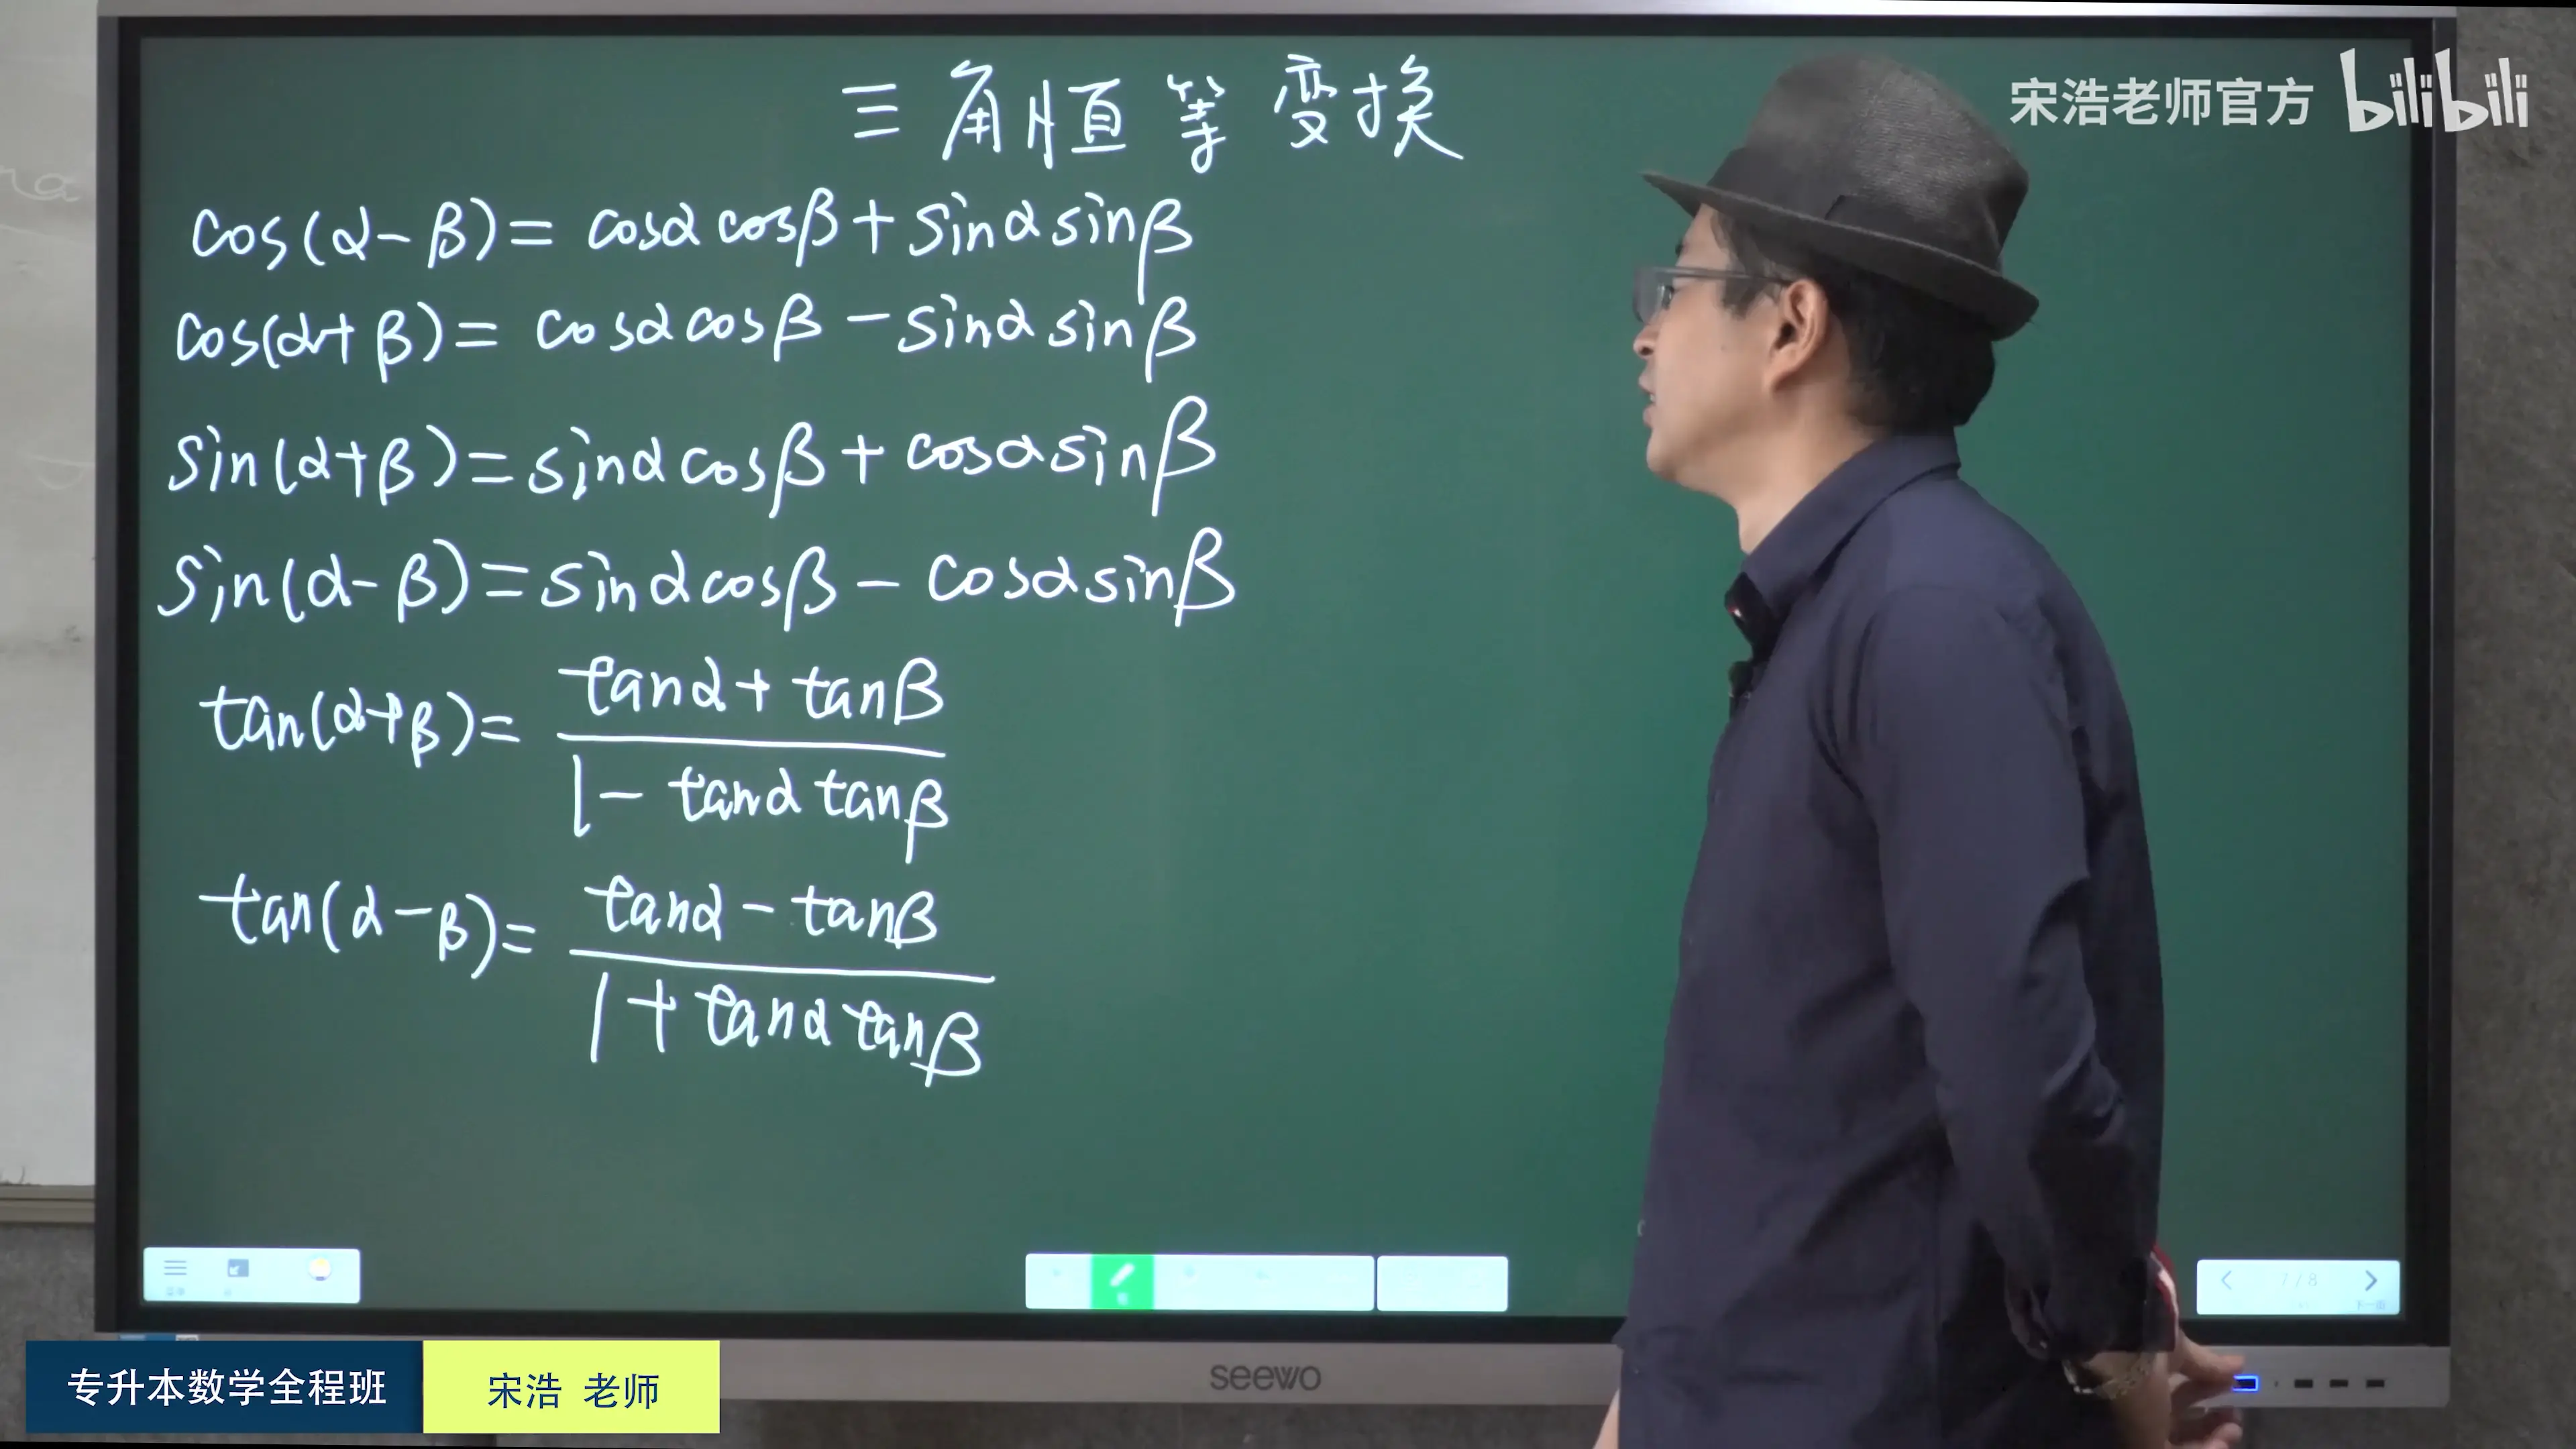 宋浩老师官方 bilibili
三角恒等变换
cos(α-β)= cosα cosβ + sinα sinβ
cos(α+β)= cosα cosβ - sinα sinβ
sin(α+β)= sinα cosβ + cosα sinβ
sin(α-β)= sinα cosβ - cosα sinβ
tan(α+β)= 
tanα + tanβ
1 - tanα tanβ
tan(α-β)= 
tanα - tanβ
1 + tanα tanβ
7 / 8
seewo
专升本数学全程班
宋浩 老师